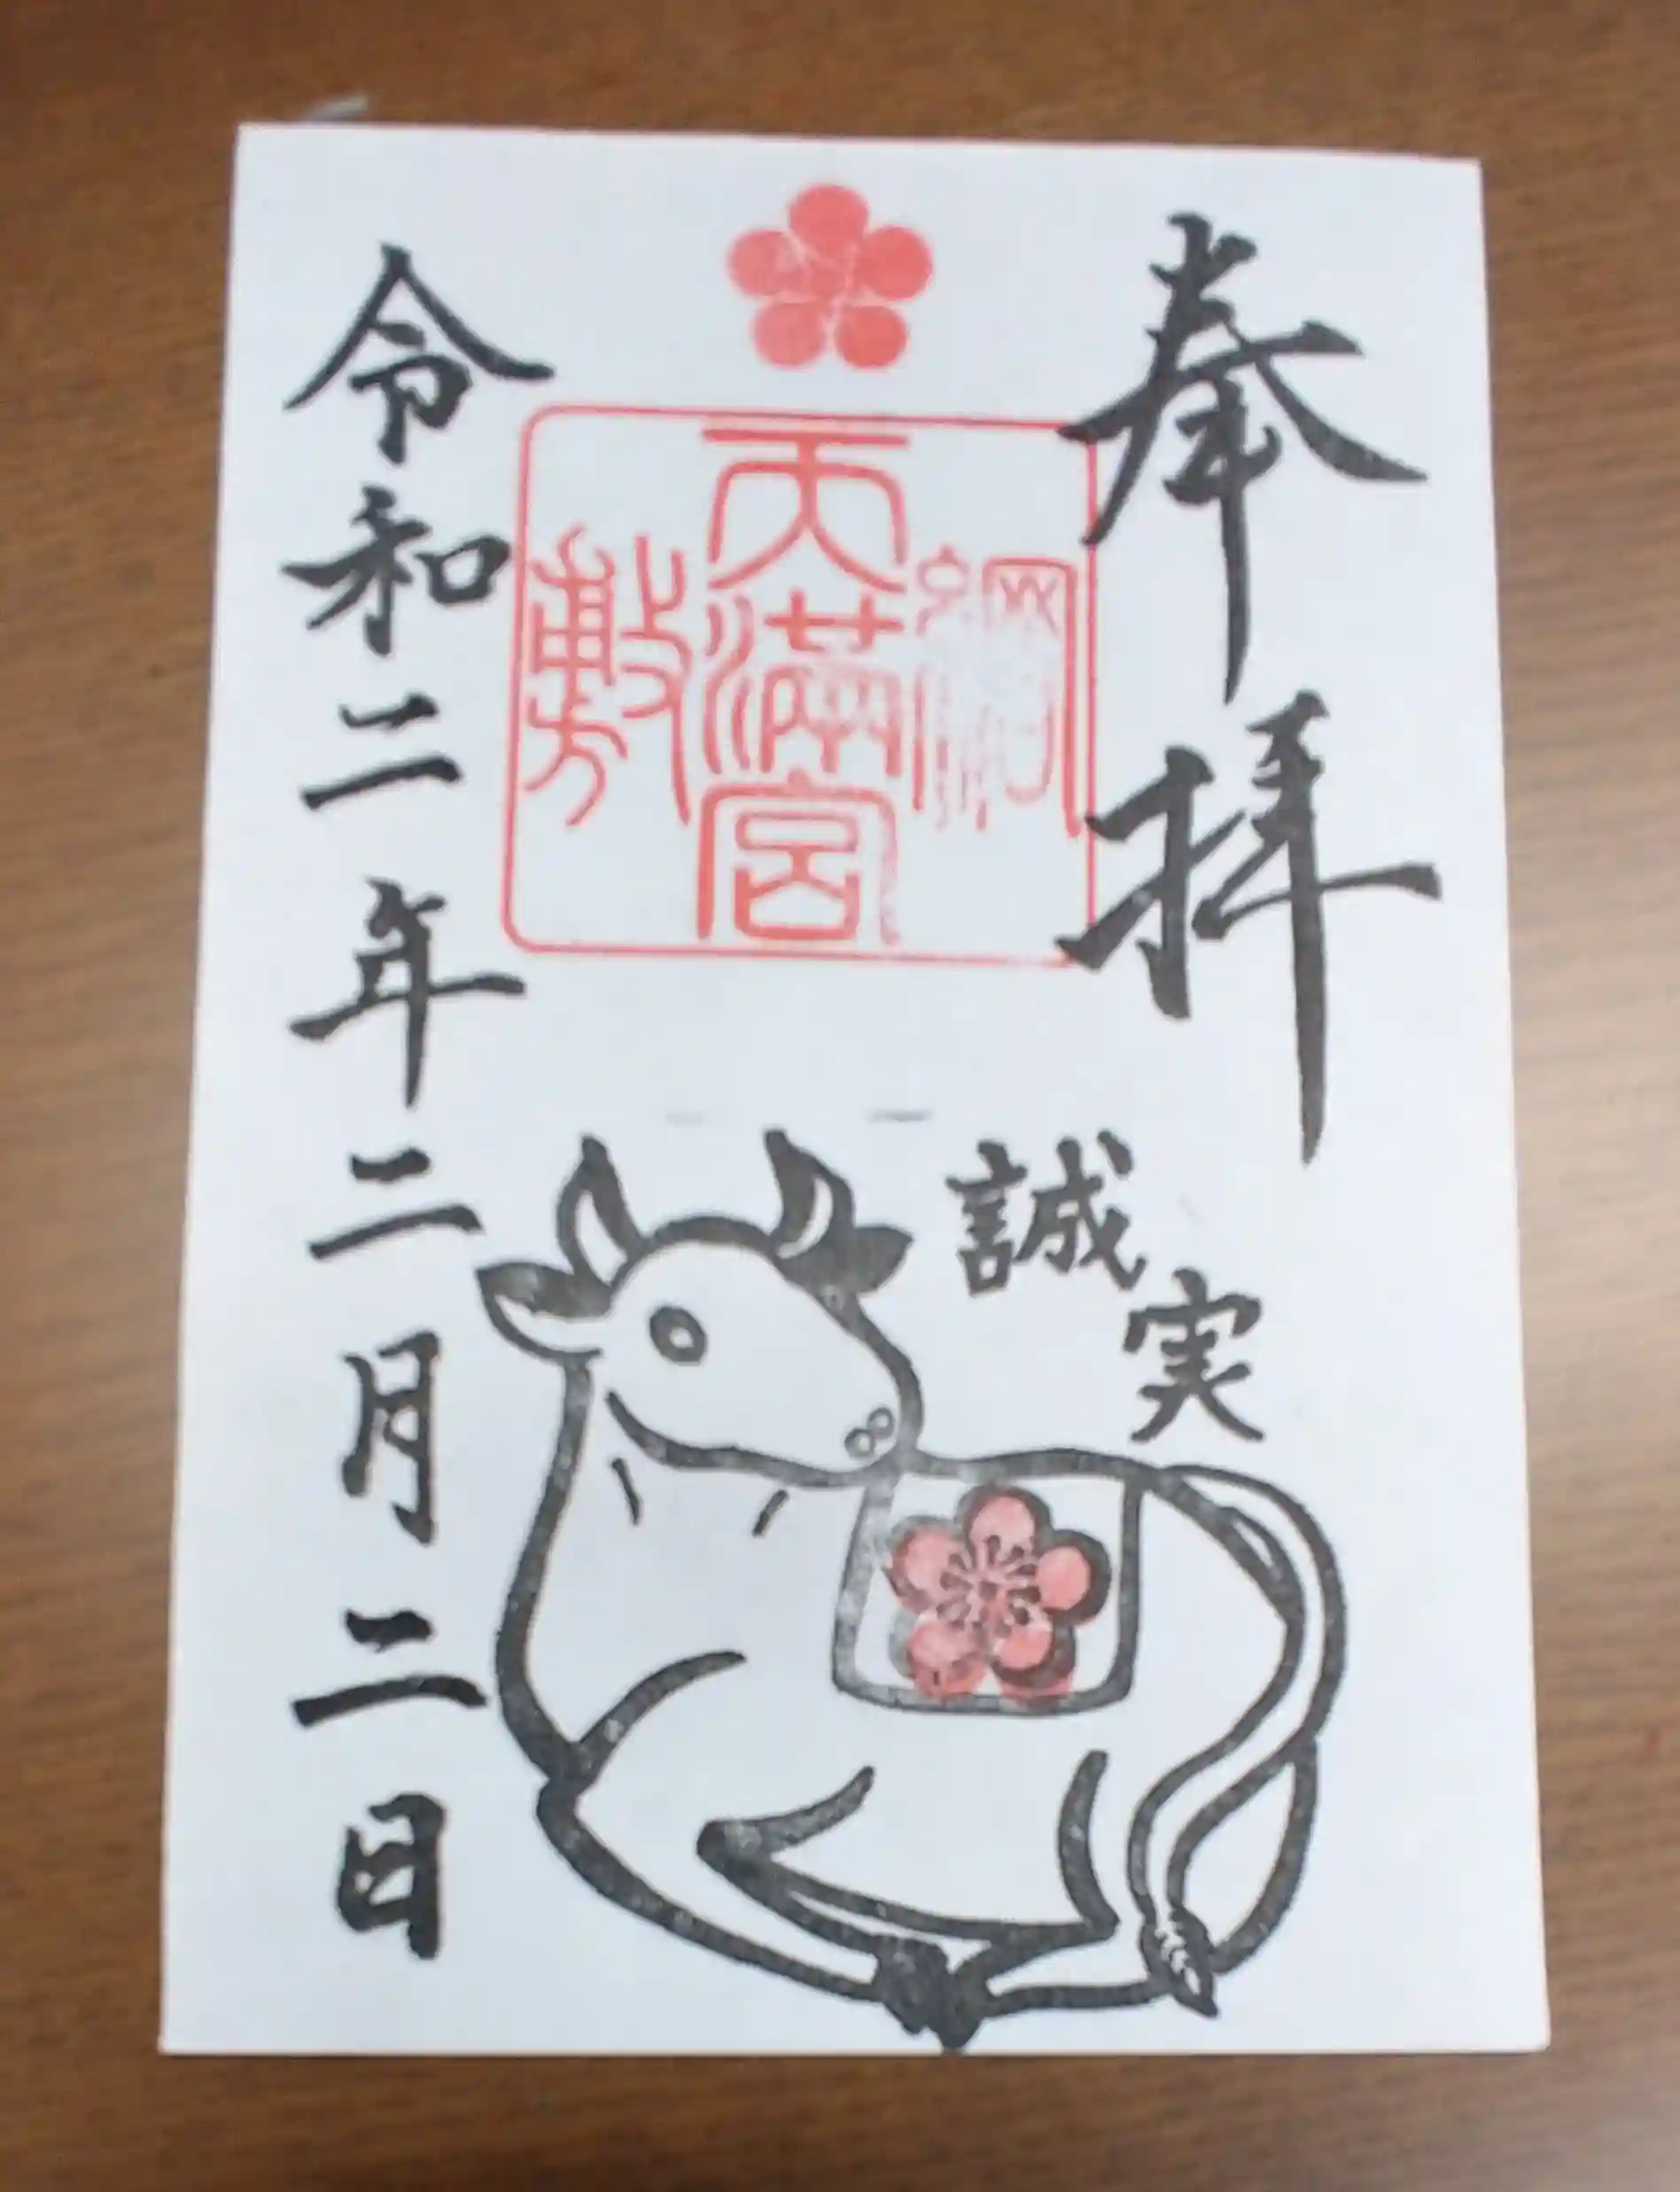 奉拝
綱
天満宮
敷
誠実
令和二年二月二日